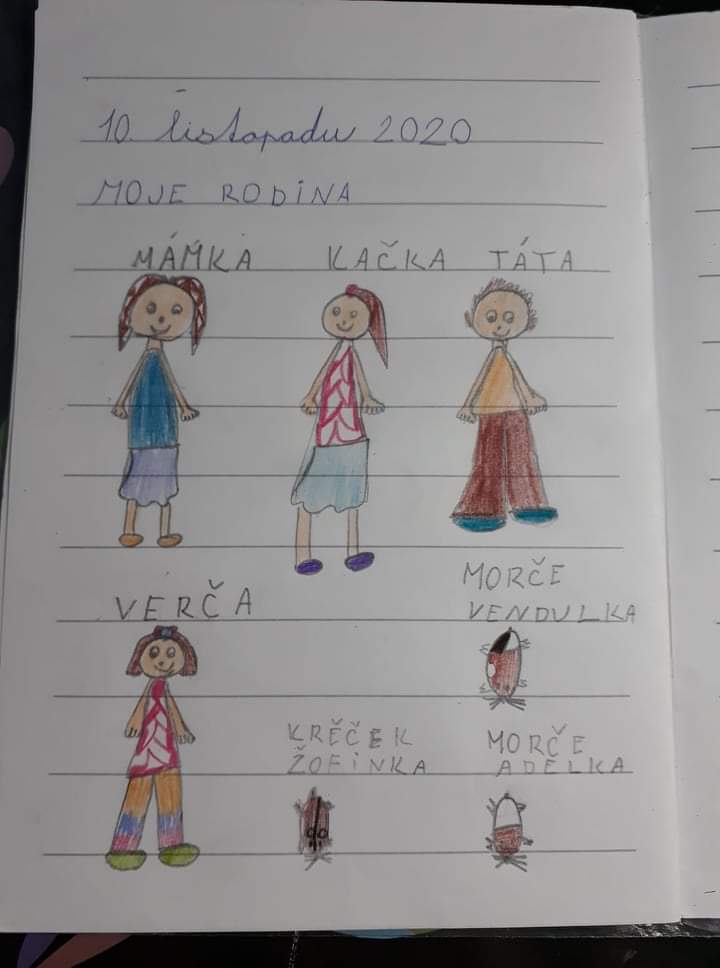 10. listopadu 2020
MOJE RODINA
MÁMKA KAČKA TÁTA
VERČA
MORČE
VENDULKA
KRĚČEK
ŽOFINKA
MORČE
ADELKA